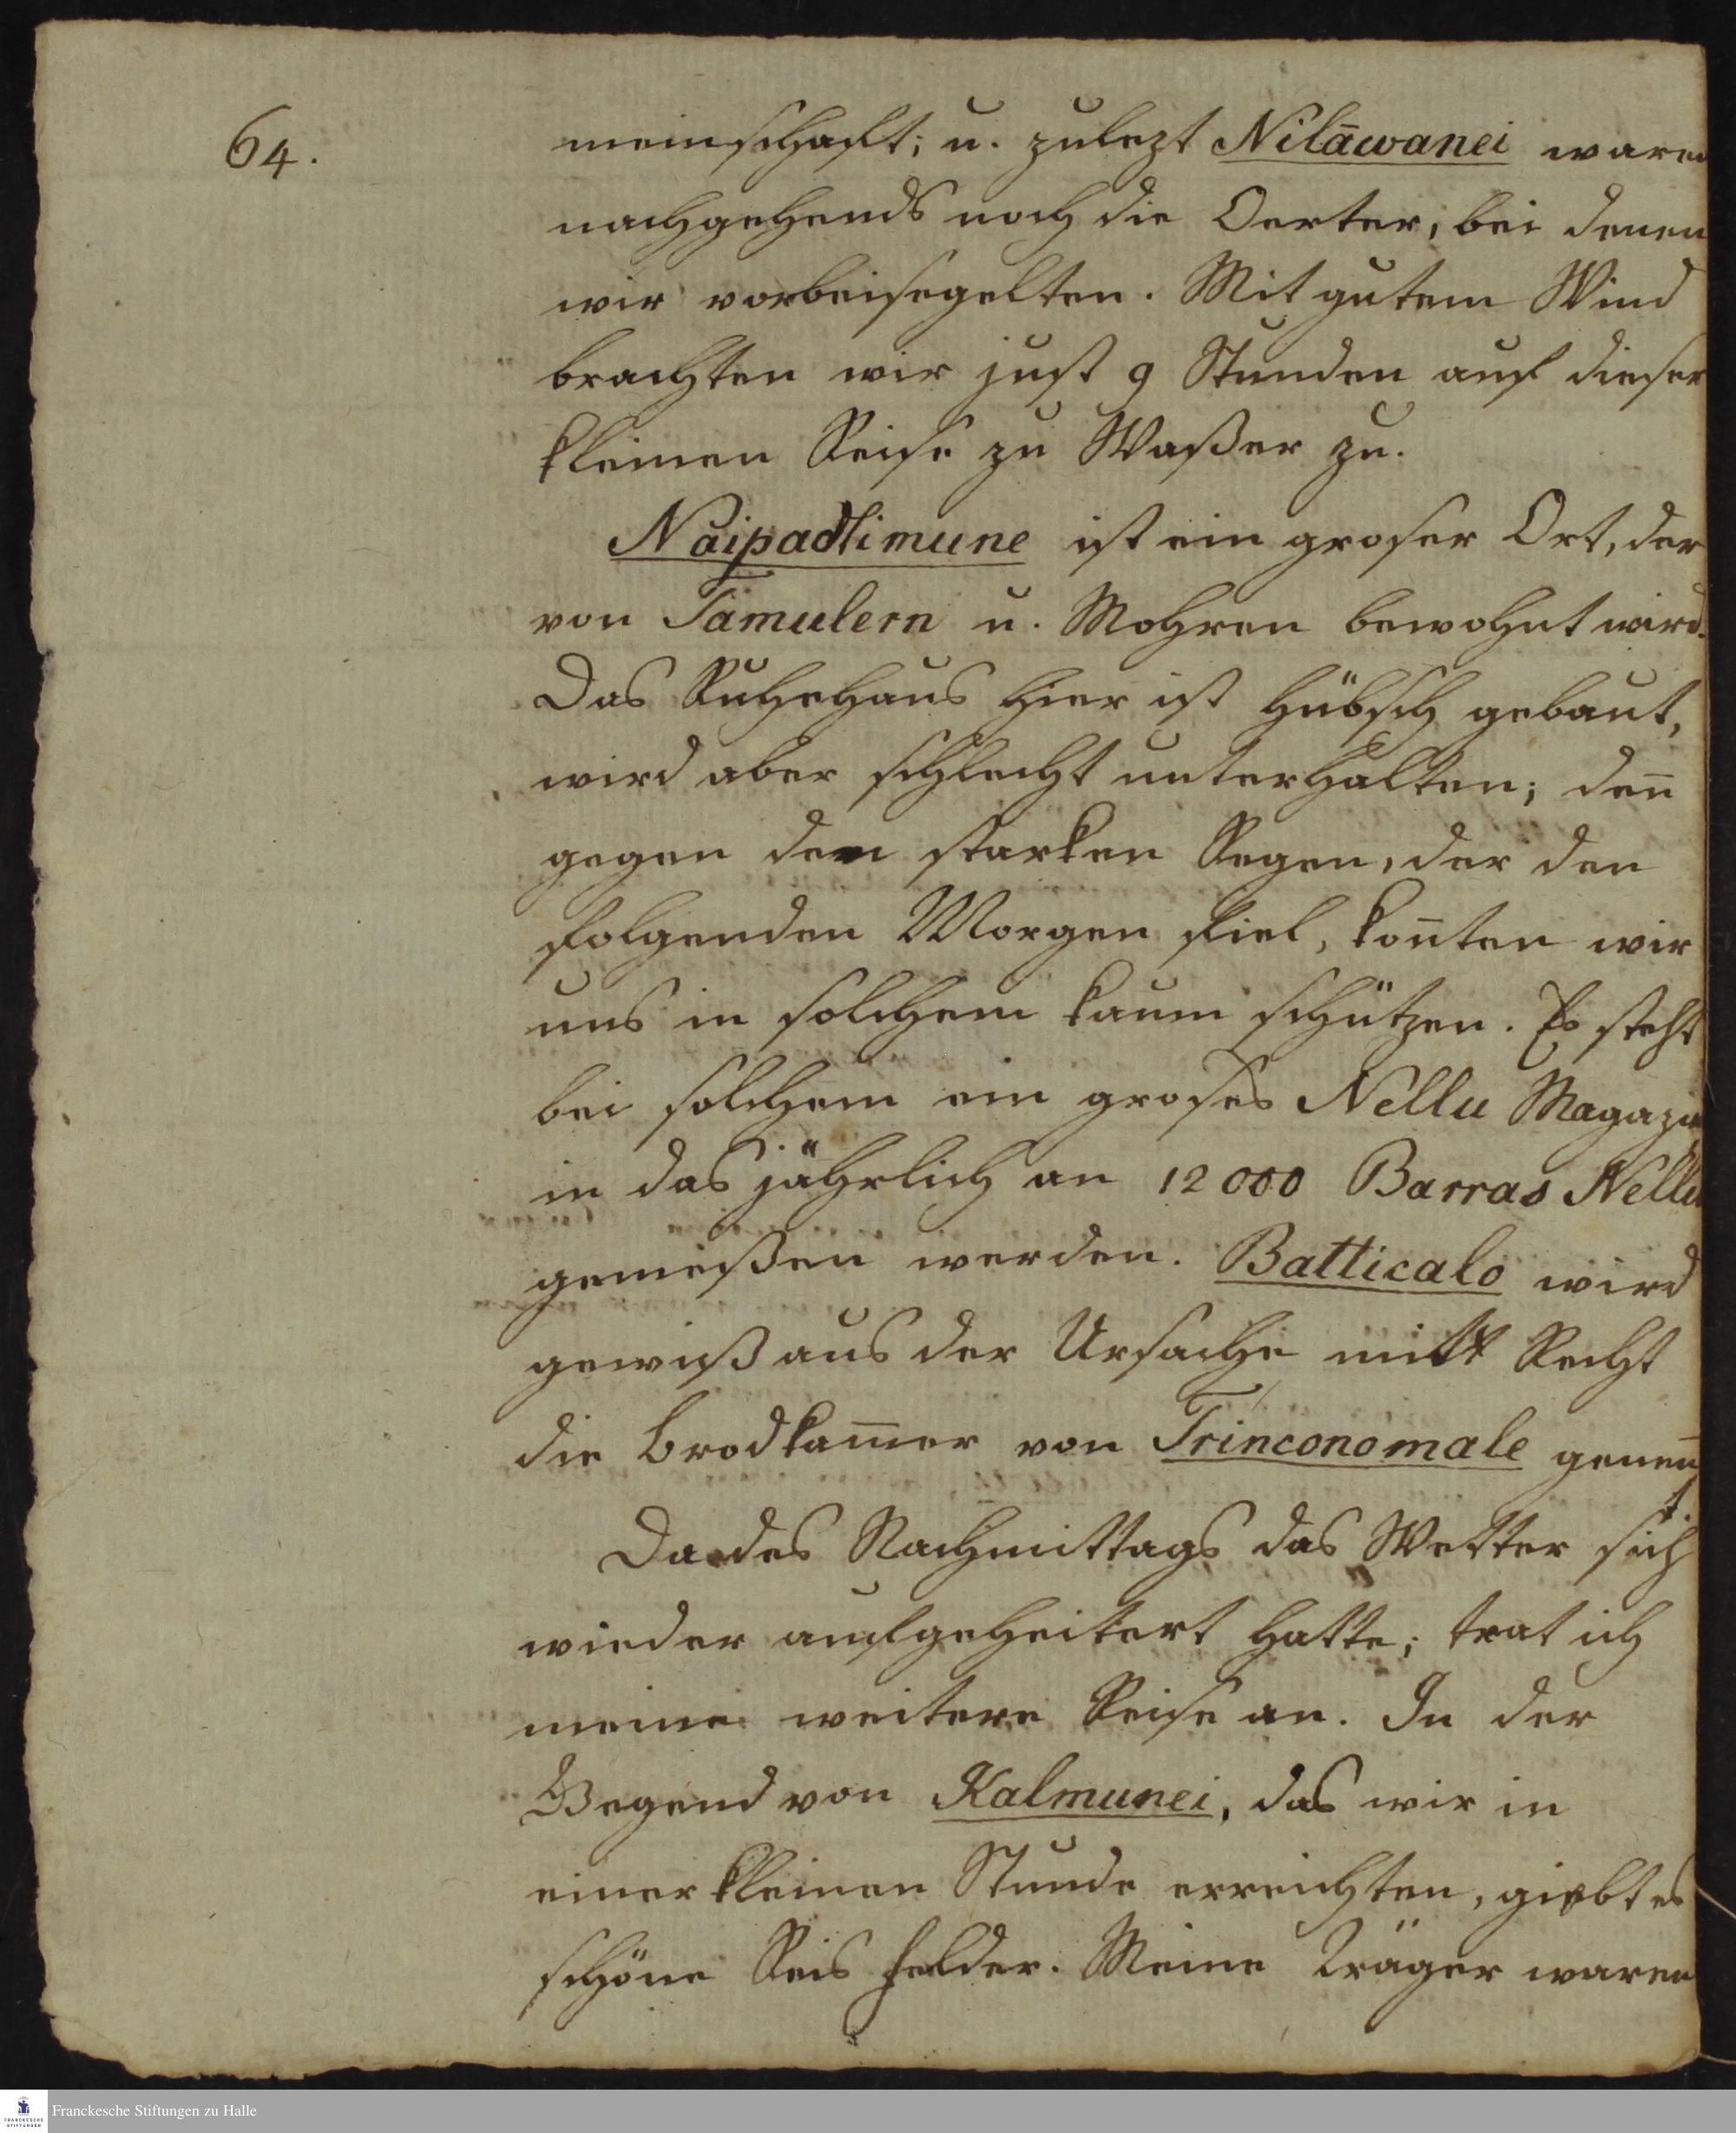 64.
meinschaft; u. zulezt Nilāwanei waren
nachgehends noch die Oerter, bei denen
wir vorbeisegelten. Mit gutem Wind
brachten wir just 9 Stunden auf dieser
kleinen Reise zu Waßer zu.
Naipadtimune ist ein groser Ort, der
von Tamulern u. Mohren bewohnt wird.
Das Ruhehaus hier ist hübsch gebaut,
wird aber schlecht unterhalten; den̄
gegen den starken Regen, der den
folgenden Morgen fiel, kon̄ten wir
uns in solchem kaum schützen. Es steht
bei solchem ein groses Nellu Magazin
in das jährlich an 12000 Barras Nellu
gemeßen werden. Batticalo wird
gewiß aus der Ursache mit Recht
die Brodkam̄er von Trinconomale genen̄t.
Da des Nachmittags das Wetter sich
wieder aufgeheitert hatte; trat ich
meine weitere Reise an. In der
Gegend von Kalmunei, das wir in
einer kleinen Stunde erreichten, giebt es
schöne Reis Felder. Meine Träger waren
Franckesche Stiftungen zu Halle